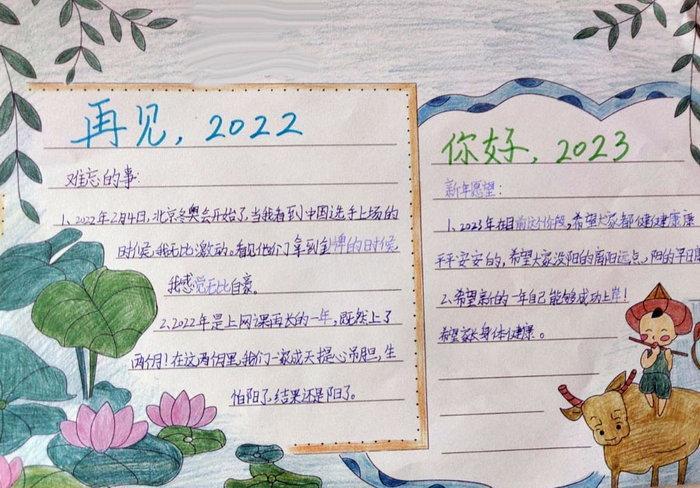 再见，2022
难忘的事：
1、2022年2月4日，北京冬奥会开始了，当我看到中国选手上场的
时候，我无比激动。看见他们拿到金牌的时候
我感觉无比自豪。
2、2022年是上网课再长的一年，既然上了
两个月！在这两个月里，我们一家成天提心吊胆，生
怕阳了，结果还是阳了。
你好，2023
新年愿望：
1、2023年在目前这个阶段，希望大家都健健康康
平平安安的，希望大家没阳的离阳远点，阳的早日
2、希望新的一年自己能够成功上岸！
希望家长身体健康。